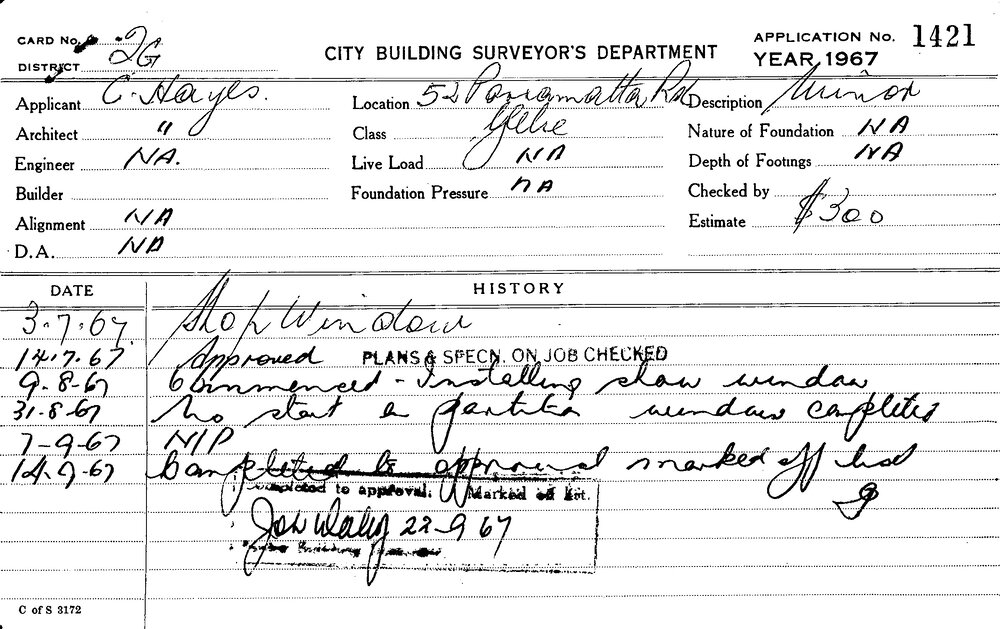 CARD No. 2G
DISTRICT
CITY BUILDING SURVEYOR'S DEPARTMENT
APPLICATION No. 1421
YEAR 1967
Applicant C. Hayes.
Location 52 Parramatta Rd
Glebe
Description Minor
Architect "
Class
Nature of Foundation NA
Engineer NA.
Live Load NA
Depth of Footings NA
Builder
Foundation Pressure NA
Checked by
Alignment NA
Estimate $300
D.A. NA
DATE HISTORY
3.7.67. Shop Window
14.7.67 Approved PLANS & SPECN. ON JOB CHECKED
9-8-67 Commenced - Installing show window
31-8-67 No start on partition window completed
7-9-67 NIP
14-9-67 Completed to approval marked off list
Completed to approval. Marked off list.
22-9 67
Building
C of S 3172